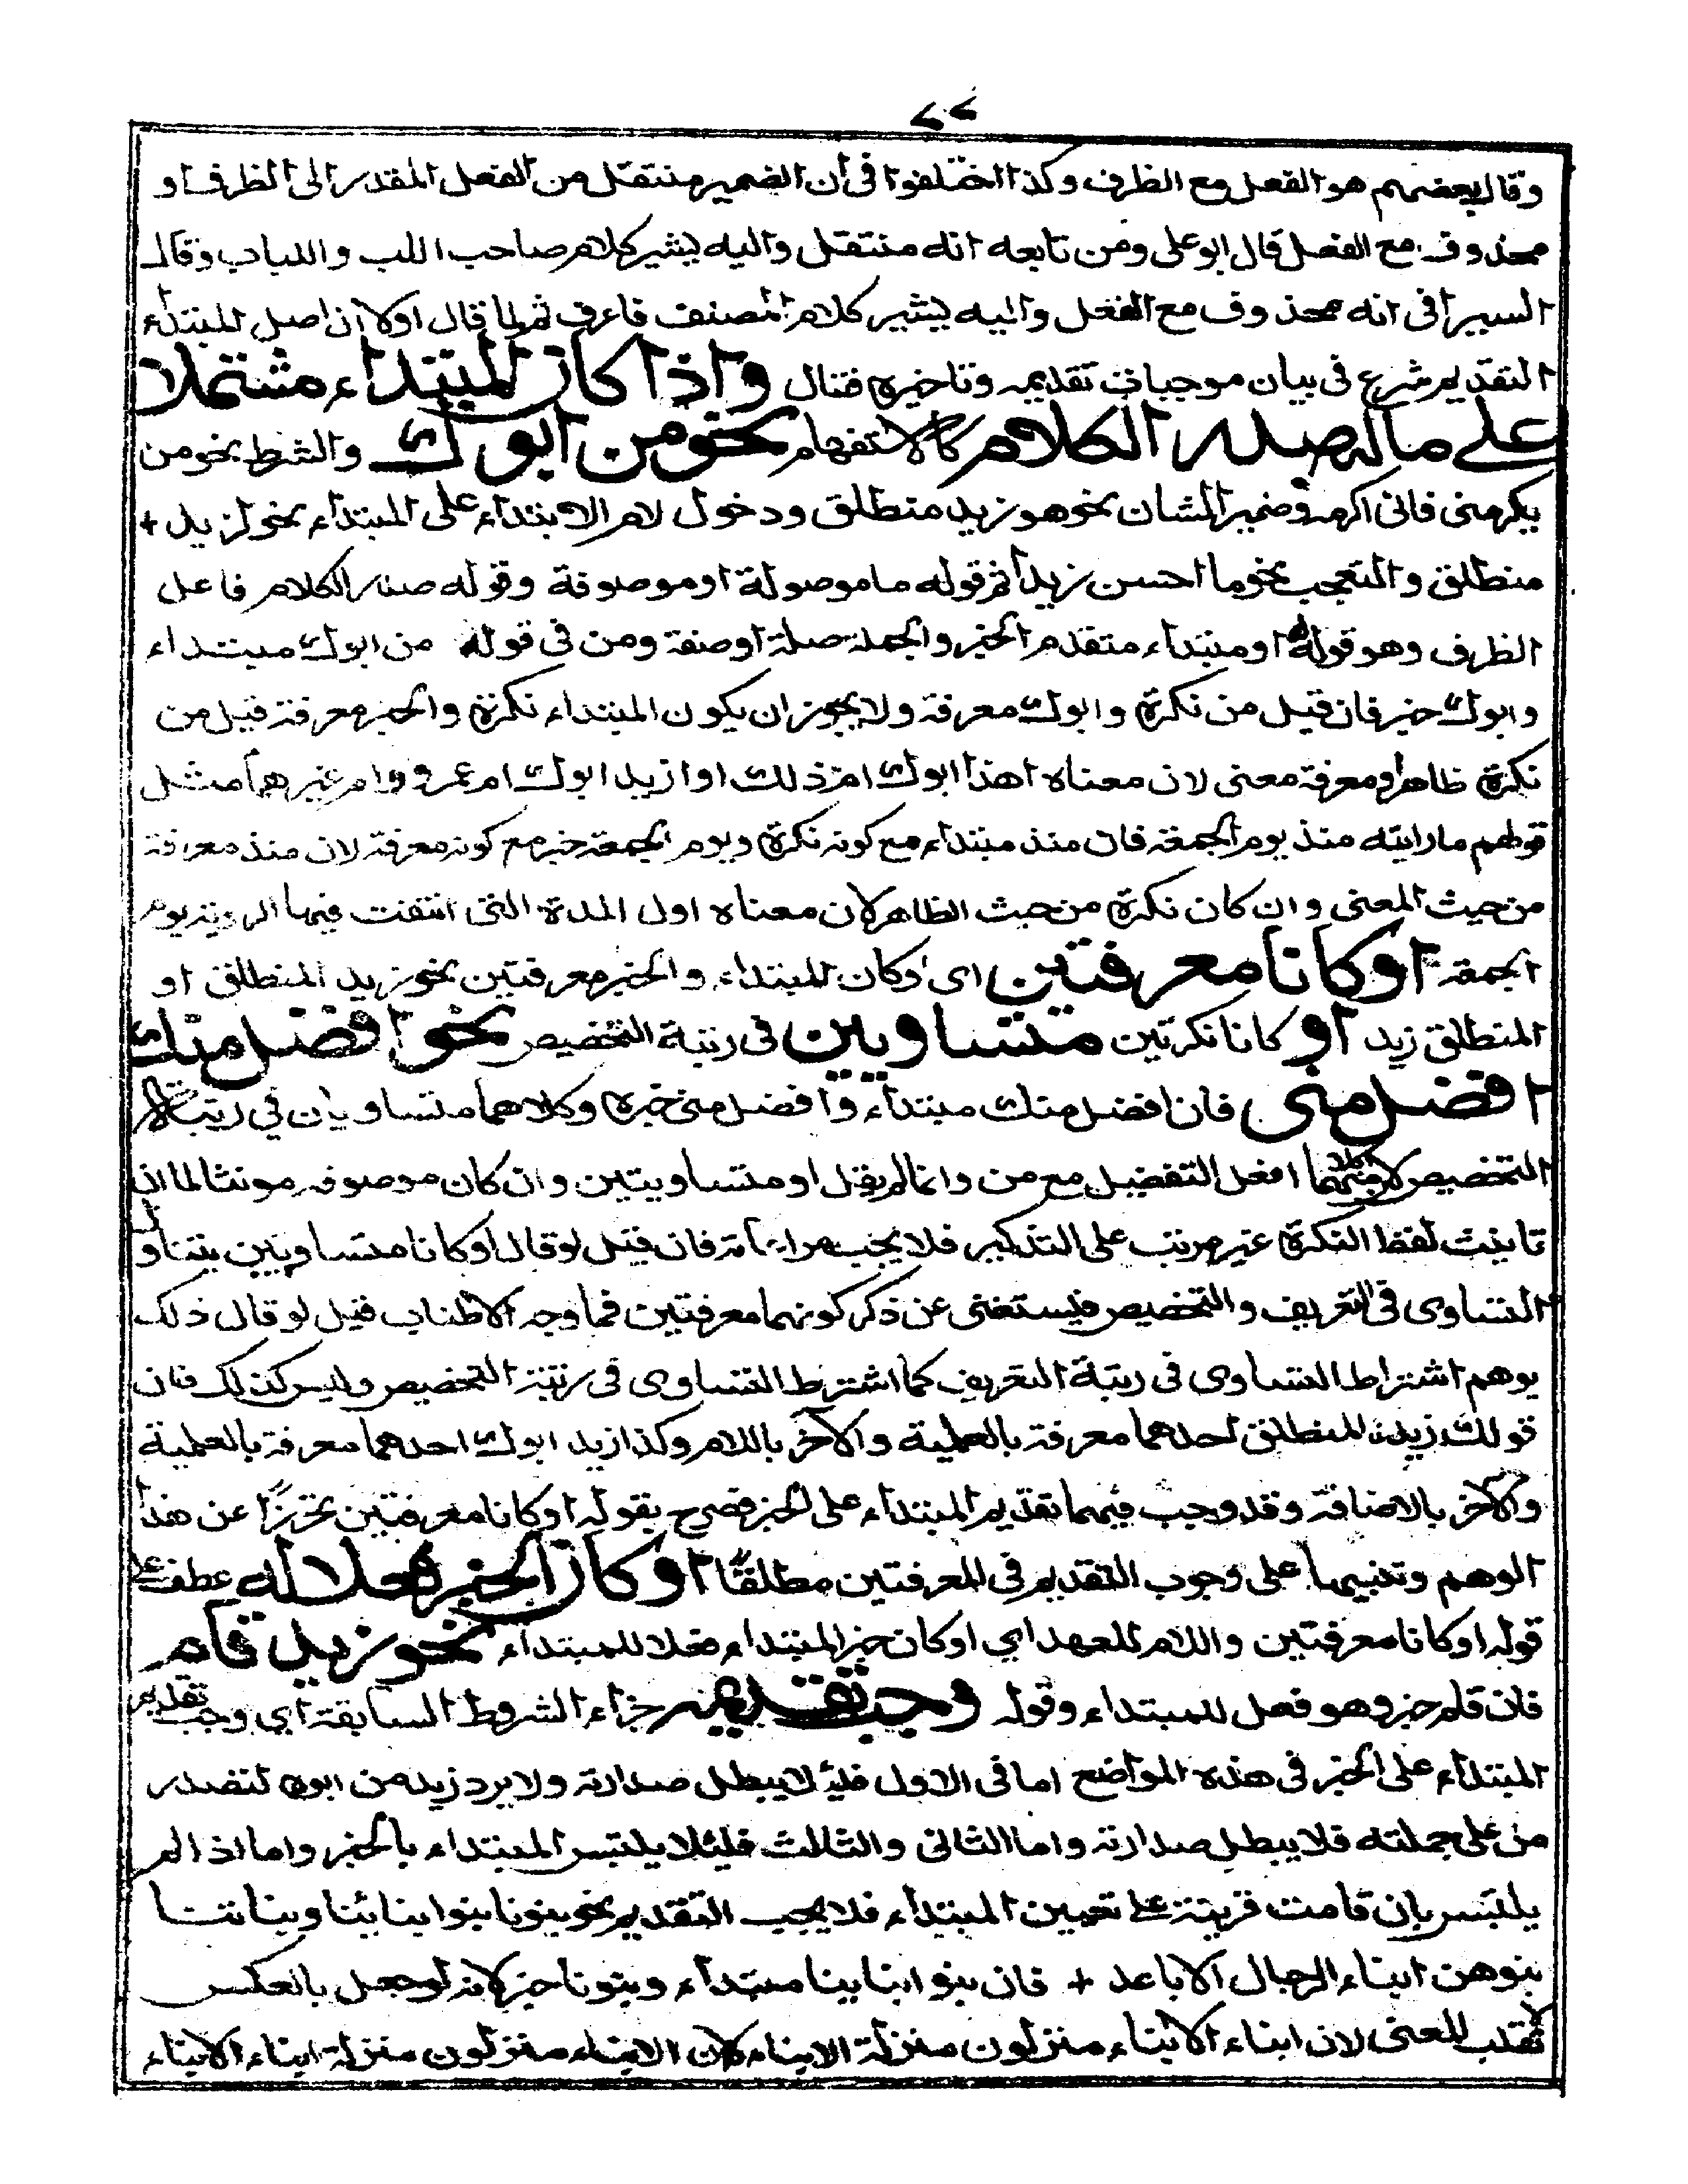 ٧٧
وقال بعضهم هو الفعل مع الظرف وكذا اختلفوا فى أن الضمير منتقل من الفعل المقدر الى الظرف او
محذوف مع الفعل قال ابو على ومن تابعه انه منتقل واليه يشير كلام صاحب اللب واللباب وقال
السيرافى انه محذوف مع الفعل واليه يشير كلام المصنف فاعرف ثم لما قال اولا ان اصل المبتداء
التقديم شرع فى بيان موجبات تقديمه وتاخيره فقال واذا كان المبتداء مشتملا
على ماله صدر الكلام كالاستفهام نحو من ابوك والشرط نحو من
يكرمنى فانى اكرمه وضمير الشان نحو هو زيد منطلق ودخول لام الابتداء على المبتداء نحو لزيد +
منطلق والتعجب نحو ما احسن زيدا ثم قوله ما موصولة او موصوفة وقوله صدر الكلام فاعل
الظرف وهو قوله له او مبتداء متقدم الخبر والجملة صلة او صفة ومن فى قوله من ابوك مبتداء
وابوك خبر فان قيل من نكرة وابوك معرفة ولا يجوز ان يكون المبتداء نكرة والخبر معرفة قيل من
نكرة ظاهرا ومعرفة معنى لان معناه اهذا ابوك ام ذلك او ازيد ابوك ام عمرو وام غيرهما مثل
قولهم ما رايته منذ يوم الجمعة فان منذ مبتداء مع كونه نكرة ويوم الجمعة خبر مع كونه معرفة لان منذ معرفة
من حيث المعنى وان كان نكرة من حيث الظاهر لان معناه اول المدة التى انتفت فيها الروية يوم
الجمعة او كانا معرفتين اى او كان المبتداء والخبر معرفتين نحو زيد المنطلق او
المنطلق زيد او كانا نكرتين متساويين فى رتبة التخصيص نحو افضل منك
افضل منى فان افضل منك مبتداء وافضل منى خبره وكلاهما متساويان في رتبة
التخصيص افعل التفضيل مع من وانما لم يقل او متساويتين وان كان موصوفه مونثا لما ان
تانيث لفظ النكرة غير مرتب على التذكير فلا يجب مراعاته فان قيل لو قال او كانا متساويين يتناول
التساوى فى التعريف والتخصيص فيستغنى عن ذكر كونهما معرفتين فما وجه الاطناب قيل لو قال ذلك
يوهم اشتراط التساوى فى رتبة التعريف كما اشترط التساوى فى رتبة التخصيص وليس كذلك فان
قولك زيد المنطلق احدهما معرفة بالعلمية والآخر باللام وكذا زيد ابوك احدهما معرفة بالعلمية
والآخر بالاضافة وقد وجب فيهما تقديم المبتداء على الخبر فصرح بقوله او كانا معرفتين تحرزا عن هذا
الوهم وتنبيها على وجوب التقديم فى المعرفتين مطلقًا او كان الخبر فعلا له عطف على
قوله او كانا معرفتين واللام للعهد اي او كان خبر المبتداء فعلا للمبتداء نحو زيد قام
فان قام خبر وهو فعل للمبتداء وقوله وجب تقديمه جزاء الشروط السابقة اي وجب تقديم
المبتداء على الخبر فى هذه المواضع اما فى الاول فلئلا يبطل صدارته ولا يرد زيد من ابوه لتصدر
من على جملته فلا يبطل صدارته واما الثانى والثالث فلئلا يلتبس المبتداء بالخبر واما اذا لم
يلتبس بان قامت قرينة على تعيين المبتداء فلا يجب التقديم نحو بنونا بنو ابنائنا وبناتنا
بنوهن ابناء الرجال الاباعد + فان بنو ابنائنا مبتداء وبنونا خبر لانه لو جعل بالعكس
لقلب المعنى لان ابناء الابناء منزلون منزلة الابناء لان الابناء منزلون منزلة ابناء الابناء